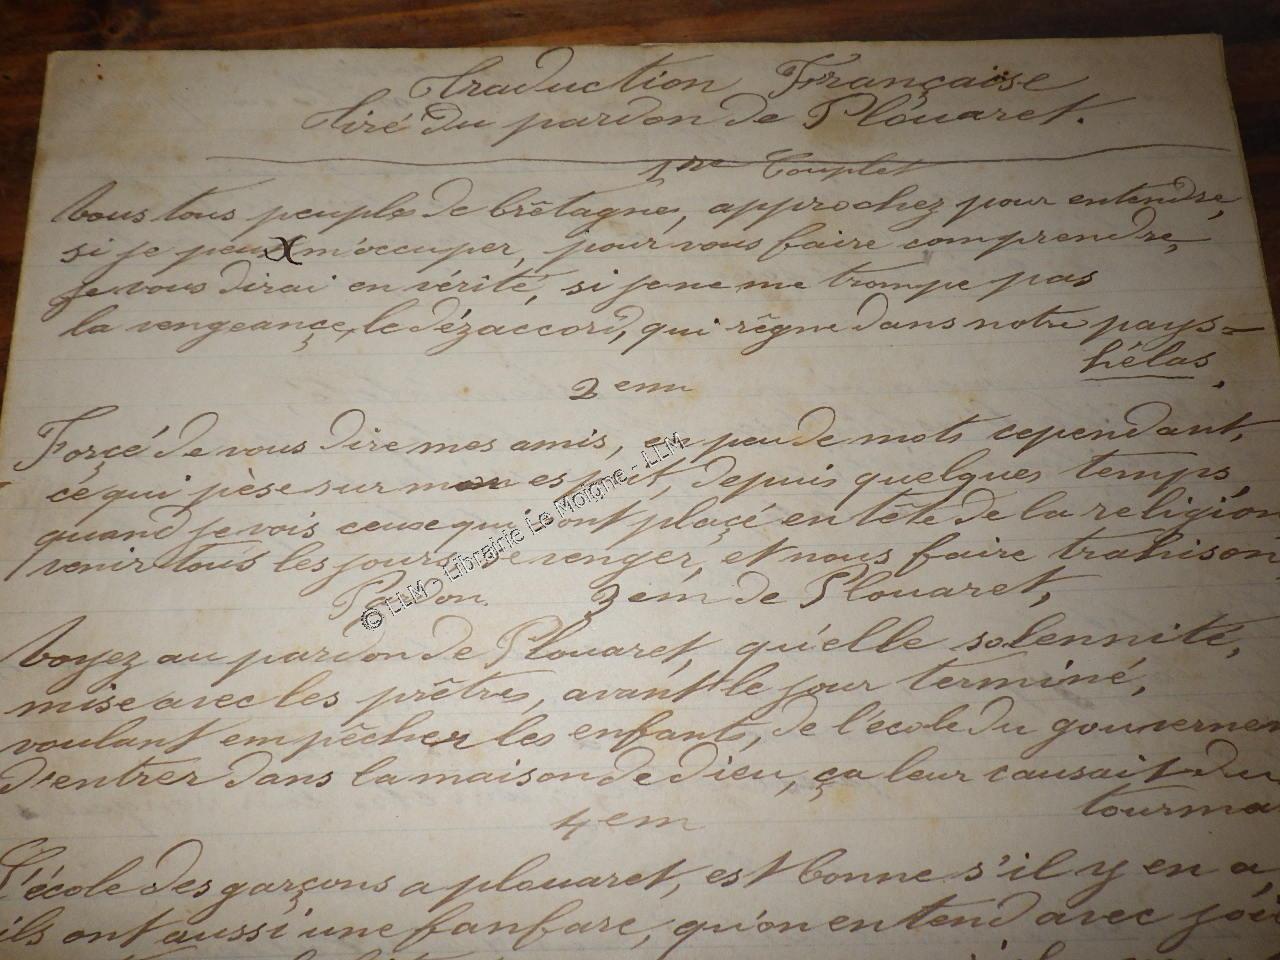 Traduction Française
Tiré du pardon de Plouaret.
1re Couplet
Vous tous peuples de brêtagne, approchez pour entendre,
si je peux m'occuper, pour vous faire comprendre,
Je vous dirai en vérité, si je ne me trompe pas
la vengeançe, le dézaccord, qui rêgne dans notre pays=
hélas,
2em
Forçé de vous dire mes amis, en peu de mots cependant,
ce qui pèse sur mon esprit, depuis quelques temps,
quand je vois ceux qui sont plaçé en tête de la religion
venir tous les jours se venger, et nous faire trahison
Pardon 3em de Plouaret,
Voyez au pardon de Plouaret, qu'elle solennité,
mise avec les prêtres, avant le jour terminé,
voulant empêcher les enfants, de l'école du gouvernem
d'entrer dans la maison de dieu, ça leur causait du
tourma
4em
L'école des garçons a plouaret, est bonne s'il y en a,
ils ont aussi une fanfare, qu'on entend avec joi
© LLM - Librairie Le Moigne - LLM